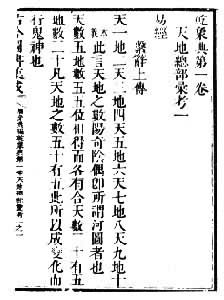 乾象典第一卷
天地總部彙考一
易經
繫辭上傳
天一地二天三地四天五地六天七地八天九地十
此言天地之數陽奇陰偶即所謂河圖者也
天數五地數五五位相得而各有合天數二十有五
地數三十凡天地之數五十有五此所以成變化而
行鬼神也